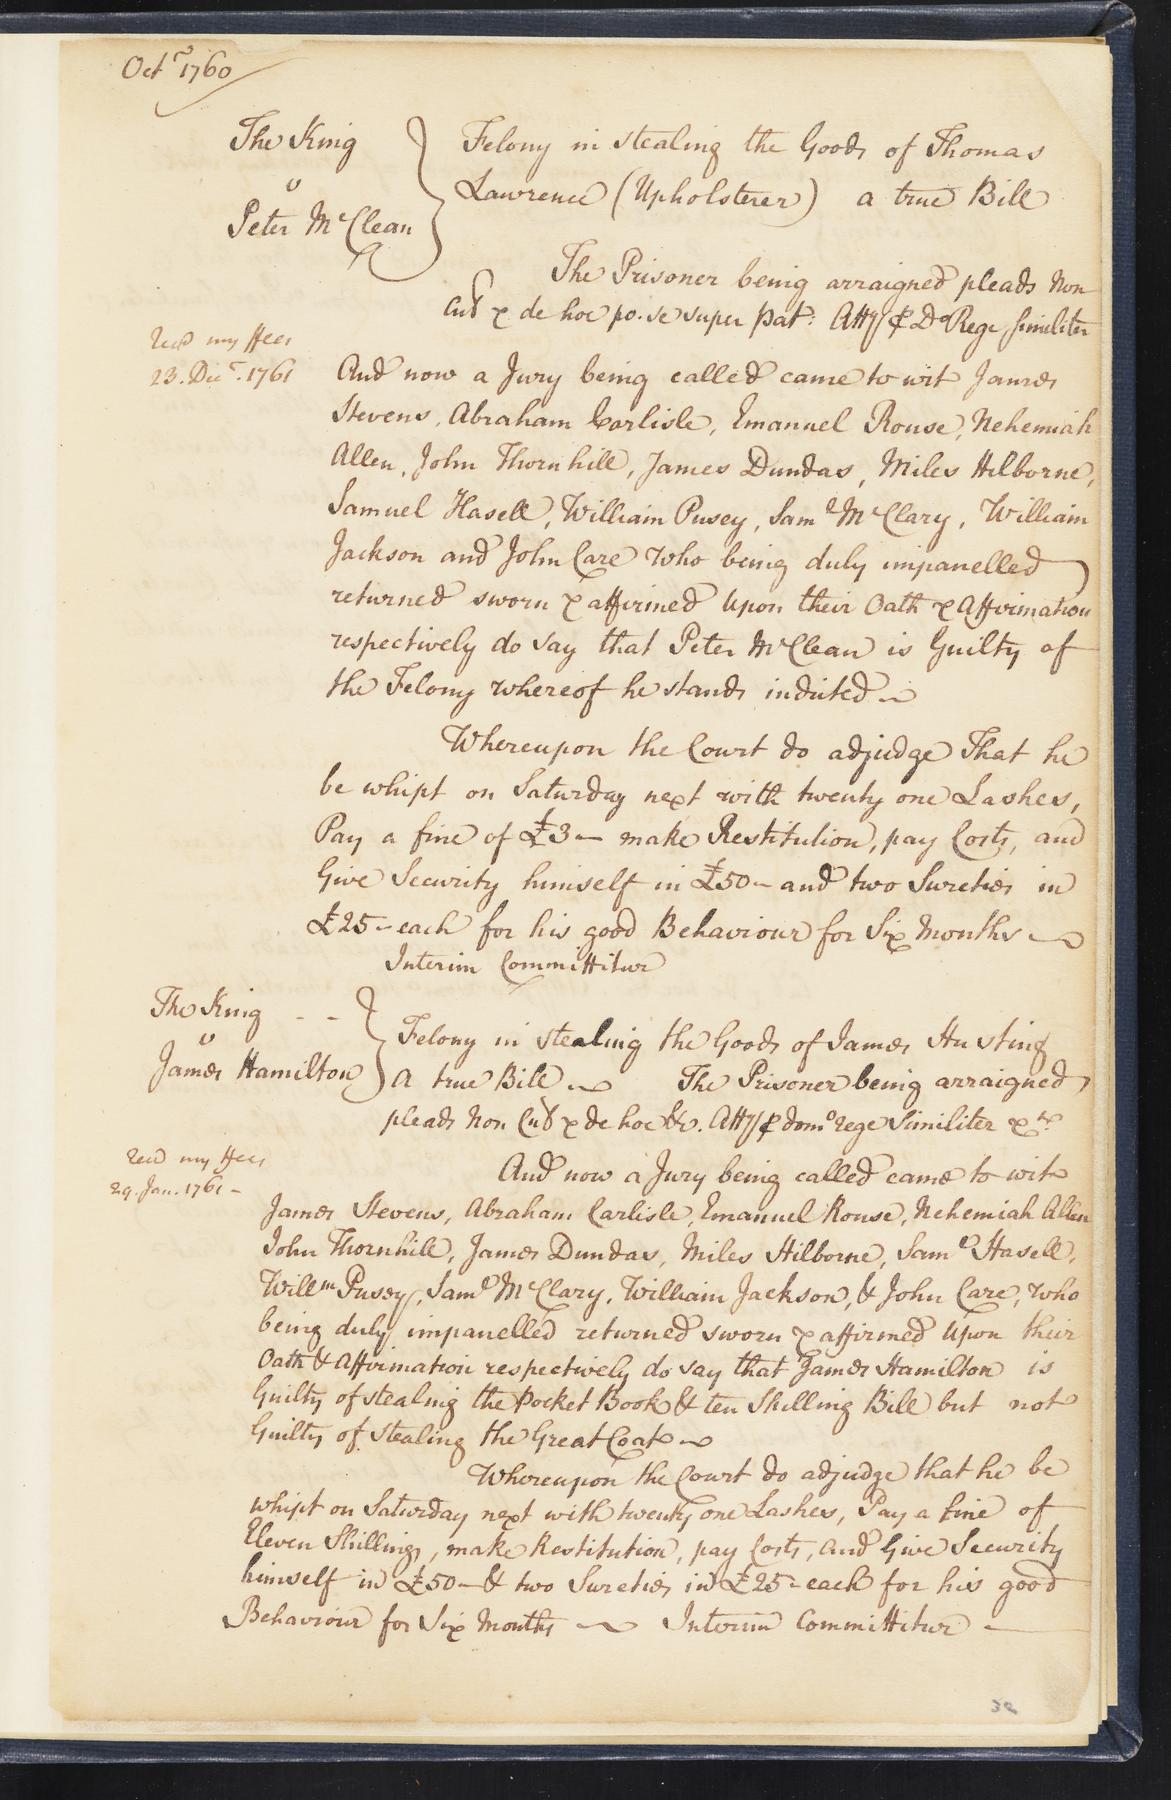 Octr 1760
The King
v
Peter McClean
Felony in stealing the Goods of Thomas
Lawrence (Upholsterer) a true Bill
The Prisoner being arraigned pleads Non
Cul & de hoc po. se super Pat: Atty P Do Rege Similiter
Recd my ffees
23. Decr. 1761
And now a Jury being called came to wit James
Stevens, Abraham Carlisle, Emanuel Rouse, Nehemiah
Allen, John Thornhill, James Dundas, Miles Hilborne,
Samuel Hasell, William Pusey, Saml McClary, William
Jackson and John Care who being duly impanelled
returned sworn & affirmed Upon their Oath & Affirmation
respectively do say that Peter McClean is Guilty of
the Felony whereof he stands indicted
Whereupon the Court do adjudge That he
be whipt on Saturday next with twenty one Lashes,
Pay a fine of £3 - make Restitution, pay Costs, and
Give Security himself in £50 - and two Sureties in
£25 - each for his good Behaviour for Six Months
Interim Committitur
The King - -
v
James Hamilton
Felony in stealing the Goods of James Husting
A true Bill The Prisoner being arraigned
pleads Non Cul & de hoc &c. Atty P domo rege Similiter &c.
Recd my ffees
29. Jan. 1761 -
And now a Jury being called came to wit
James Stevens, Abraham Carlisle, Emanuel Rouse, Nehemiah Allen
John Thornhill, James Dundas, Miles Hilborne, Saml Hasell,
Willm Pusey, Saml McClary, William Jackson, & John Care, who
being duly impanelled returned sworn & affirmed Upon their
Oath & Affirmation respectively do say that James Hamilton is
Guilty of stealing the Pocket Book & ten Shilling Bill but not
Guilty of Stealing the Great Coat
Whereupon the Court do adjudge that he be
whipt on Saturday next with twenty one Lashes, Pay a fine of
Eleven Shillings, make Restitution, pay Costs, and Give Security
himself in £50 - & two Sureties in £25 - each for his good
Behaviour for Six Months Interim Committitur
32